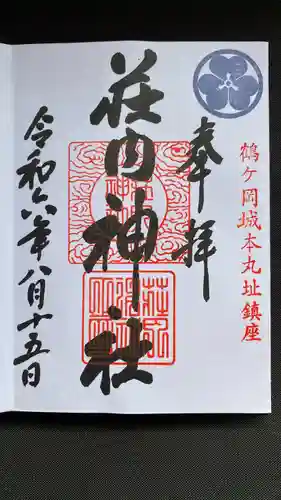 鶴ヶ岡城本丸址鎮座
奉拝
荘内神社
令和六年八月十五日